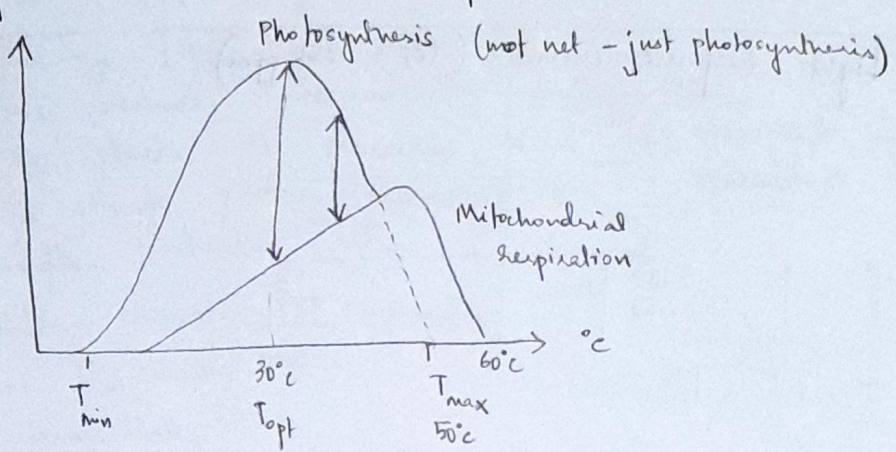 Photosynthesis (not net - just photosynthesis)
Mitochondrial
respiration
°C
30°C
60°C
Tmin
Topt
Tmax
50°C